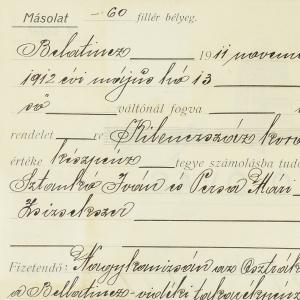 Másolat —60 fillér bélyeg.
Belatincz 1911 novem
1912 évi május hó 13
váltónál fogva
rendelet re Kilenczszáz koro
értéke készpénz tegye számolásba tudó
Sztankó Iván és Persa Mári
Zsizsekszer
Fizetendő: Nagykanizsán az Osztrák
a Bellatincz-vidéki takarékpénz